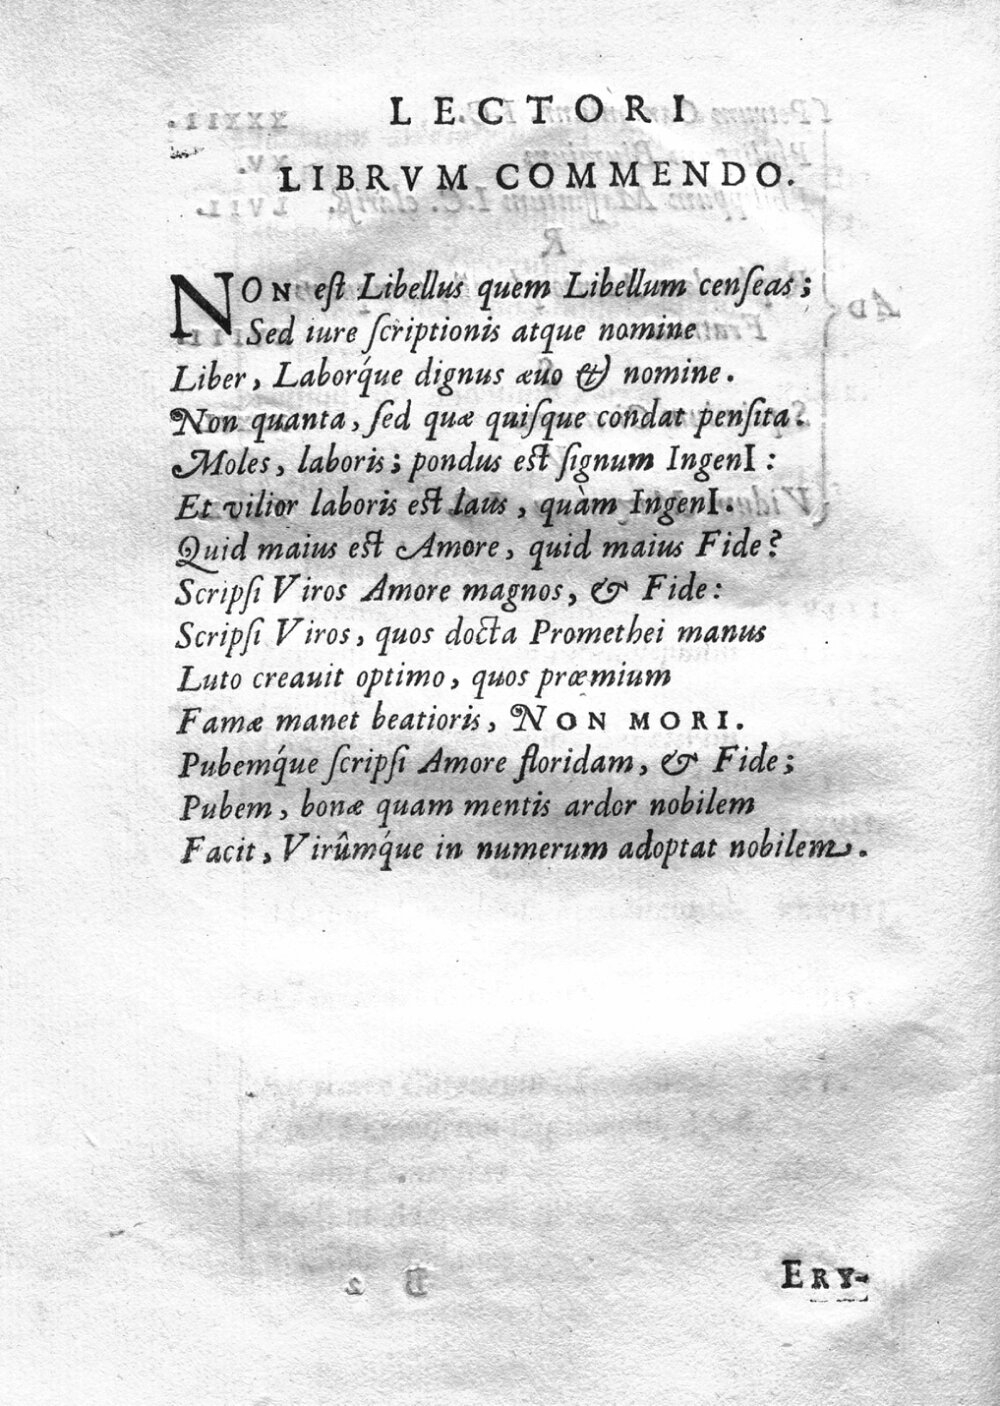 LECTORI
LIBRVM COMMENDO.
NON eſt Libellus quem Libellum cenſeas;
Sed iure ſcriptionis atque nomine
Liber, Laborq́ue dignus æuo & nomine.
Non quanta, ſed quæ quiſque condat penſita.
Moles, laboris; pondus eſt ſignum IngenI:
Et vilior laboris eſt laus, quàm IngenI.
Quid maius eſt Amore, quid maius Fide?
Scripſi Viros Amore magnos, & Fide:
Scripſi Viros, quos docta Promethei manus
Luto creauit optimo, quos præmium
Famæ manet beatioris, NON MORI.
Pubemq́ue ſcripſi Amore floridam, & Fide;
Pubem, bonæ quam mentis ardor nobilem
Facit, Virûmq́ue in numerum adoptat nobilem.
ERY-